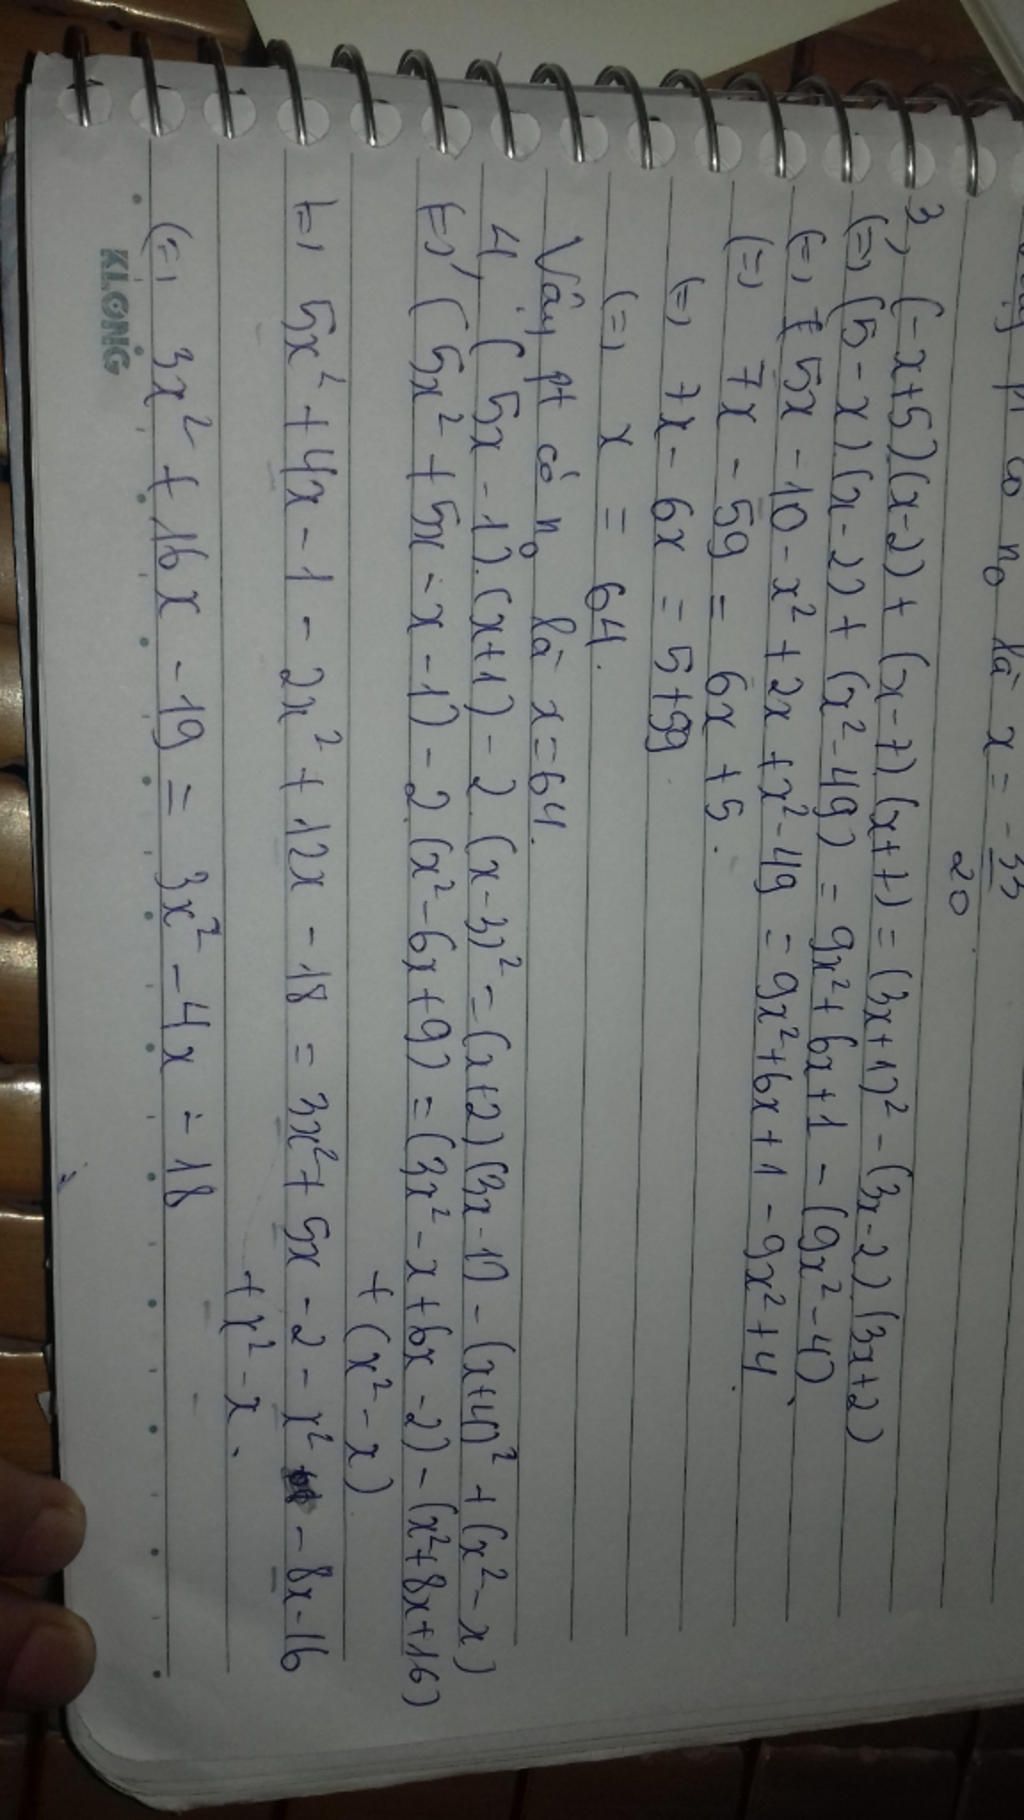 pt có n₀ là x = -33/20
3, (-x+5)(x-2) + (x-7)(x+7) = (3x+1)² - (3x-2)(3x+2)
(=) (5-x)(x-2) + (x²-49) = 9x²+6x+1 - (9x²-4)
(=) 5x - 10 - x² + 2x + x² - 49 = 9x²+6x+1 - 9x²+4.
(=) 7x - 59 = 6x + 5.
(=) 7x - 6x = 5+59
(=) x = 64.
Vậy pt có n₀ là x=64.
4, (5x-1).(x+1) - 2(x-3)² = (x+2)(3x-1) - (x+4)² + (x²-x)
(=) (5x²+5x-x-1) - 2(x²-6x+9) = (3x²-x+6x-2) - (x²+8x+16)
+ (x²-x)
(=) 5x²+4x-1 - 2x²+12x - 18 = 3x²+5x - 2 - x² - 8x-16
+ x² - x.
(=) 3x² + 16x - 19 = 3x² - 4x - 18
KLONG